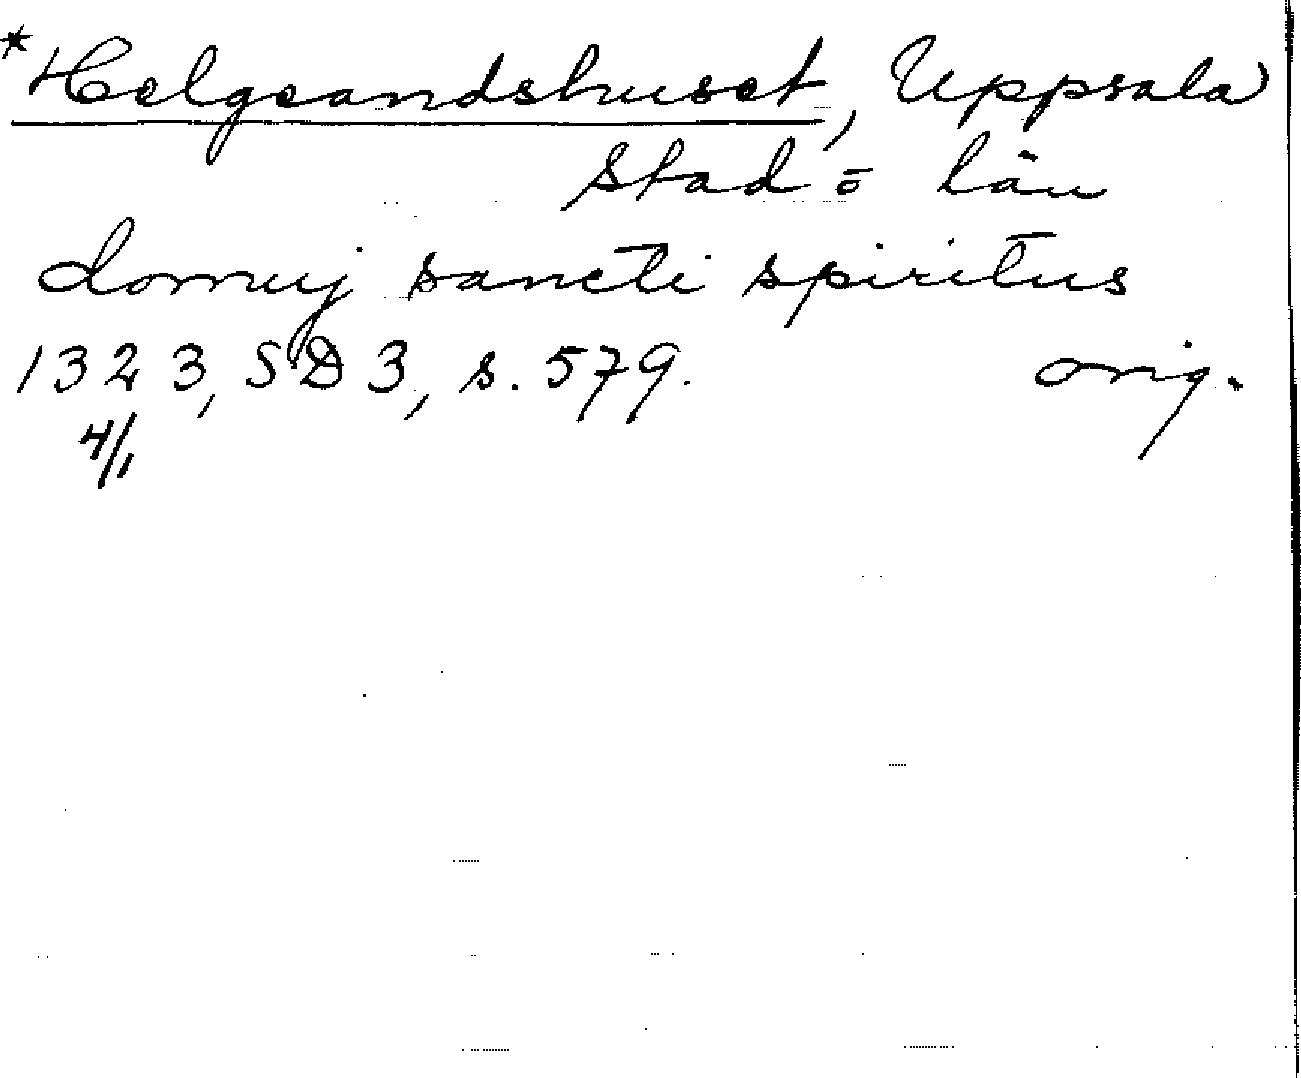 *Helgeandshuset, Uppsala
stad o län
domuj sancti spiritus
1323, SD 3, s. 579. orig.
4/1